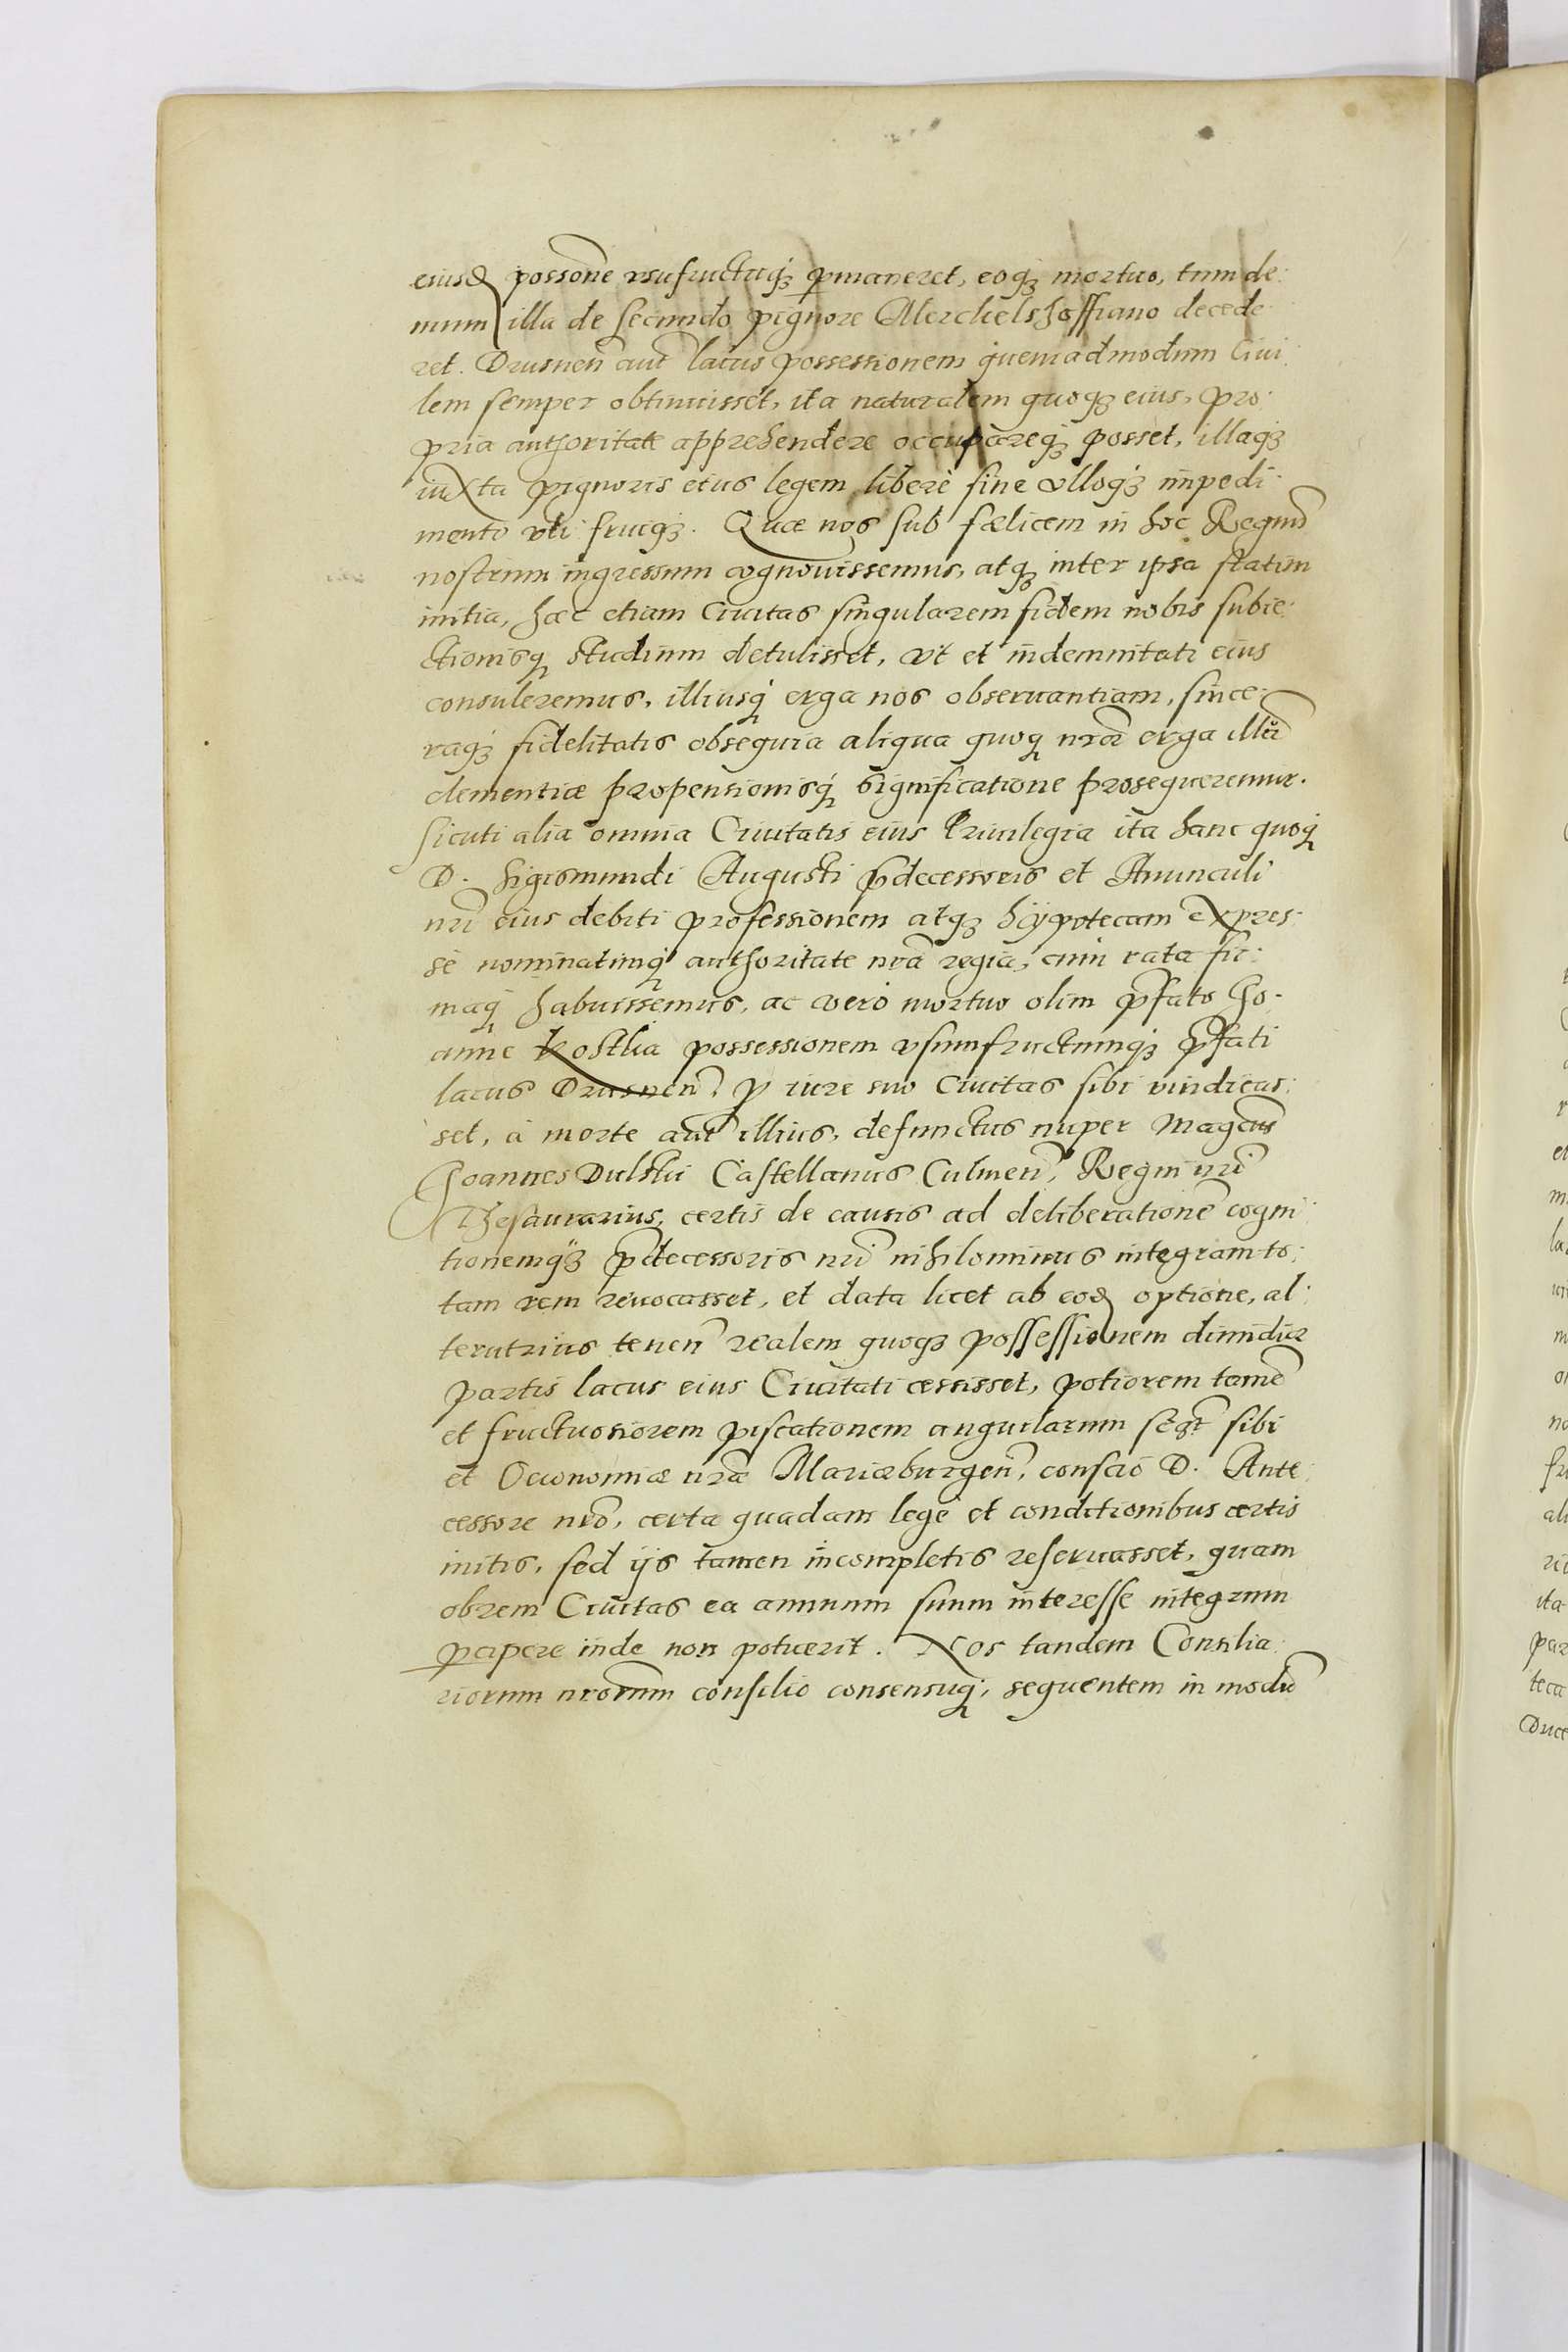 eiusd possone usufructuq permaneret, eoq mortuo, tum de:
mum illa de secundo pignore Merchelshoffiano decede
ret. Drusnen aut lacus possessionem quemadmodum Civi
lem semper obtinuisset, ita naturalem quoq eius, pro:
pria authoritate apprehendere occupareq posset, illaq
iuxta pignoris eius legem liberè sine ulloq impedi:
mento uti fruiq. Quæ nos sub fælicem in hoc Regnũ
nostrum ingressum cognovissemus, atq inter ipsa statim
initia, hæc etiam Civitas singularem fidem nobis subie:
ctionisq studium detulisset, ut et indemnitati eius
consuleremus, illiusq erga nos observantiam, since:
raq fidelitatis obsequia aliqua quoq nrã erga illũ
clementiæ propensionisq significatione prosequeremur.
sicuti alia omnia Civitatis eius Privilegia ita hanc quoq
D. Sigismundi Augusti p̃decessoris et Avunculi
nrĩ eius debiti professionem atq hÿpotecam expres:
sè nominatimq authoritate nrã regia, cum rata fir:
maq habuissemus, ac verò mortuo olim p̃fato Jo-
anne Kostka possessionem usumfructumq p̃fati
lacus Drusnen, p iure suo Civitas sibi vindicas:
set, à morte aut illius, defunctus nuper Magcus
Joannes Dulski Castellanus Culmen, Regni nrĩ
Thesaurarius, certis de causis ad deliberationẽ cogni
tionemq p̃decessoris nrĩ nihilominus integram to:
tam rem revocasset, et data licet ab eod optione, al:
terutrius tenen realem quoq possessionem dimidiæ
partis lacus eius Civitati cessisset, potiorem tamẽ
et fructuosiorem piscationem anguilarum sibi
et Oeconomiæ nræ Mariæburgen, conscio D. Ante:
cessore nrõ, certa quadam lege et conditionibus certis
initis, sed ijs tamen incompletis reservasset, quam
obrem Civitas ea annuum suum interesse integrum
pcipere inde non potuerit. Nos tandem Consilia:
riorum nrorum consilio consensuq, sequentem in modũ